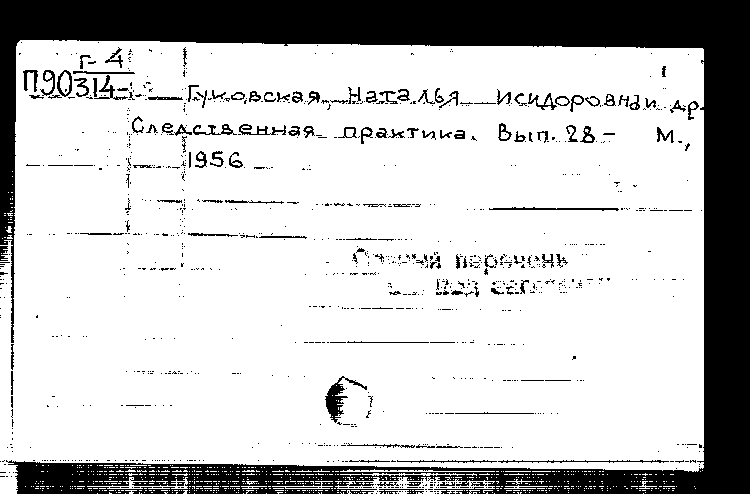 Г-4
П90314-
Гуковская, Наталья Исидоровна и др.
Следственная практика. Вып. 28 - М.,
1956
перечень
под